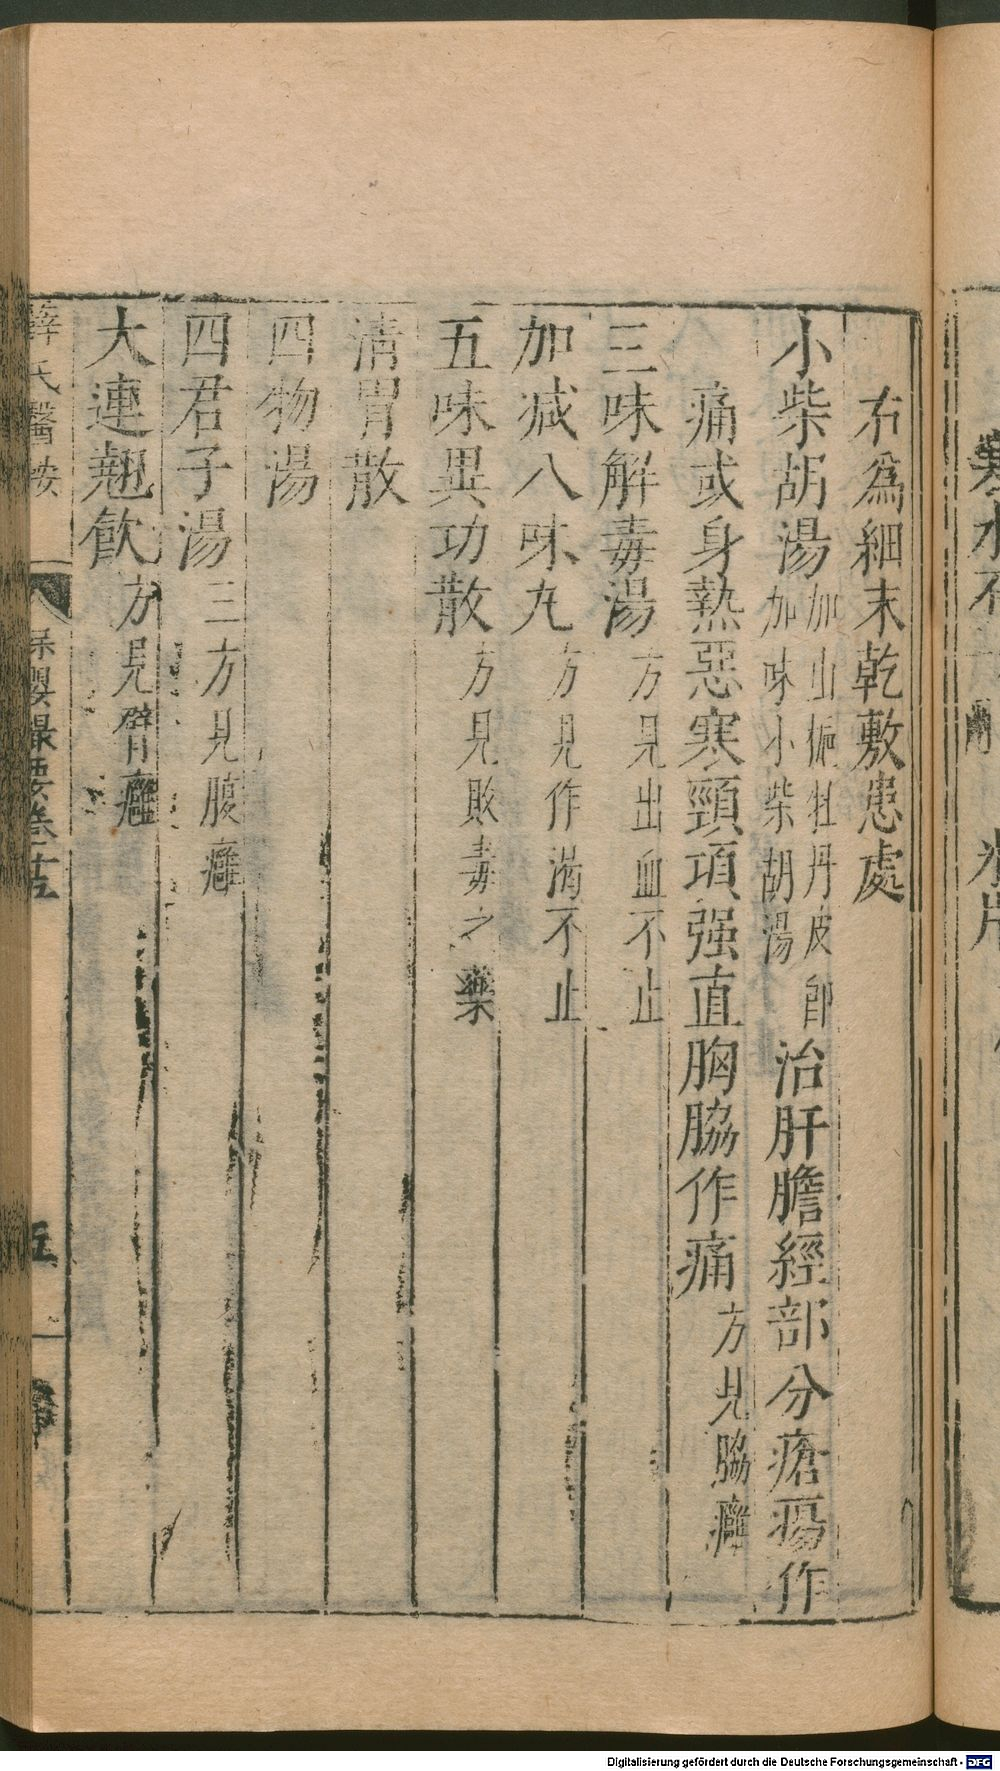 右爲細末乾敷患處
小柴胡湯加山梔牡丹皮卽加味小柴胡湯治肝膽經部分瘡瘍作
痛或身熱惡寒頸項强直胸脇作痛方見脇癰
三味解毒湯方見出血不止
加减八味丸方見作渴不止
五味異功散方見敗毒之藥
清胃散
四物湯
四君子湯三方見腹癰
大連翹飮方見臂癰
薛氏醫按 保嬰撮要卷十五 五
Digitalisierung gefördert durch die Deutsche Forschungsgemeinschaft - DFG